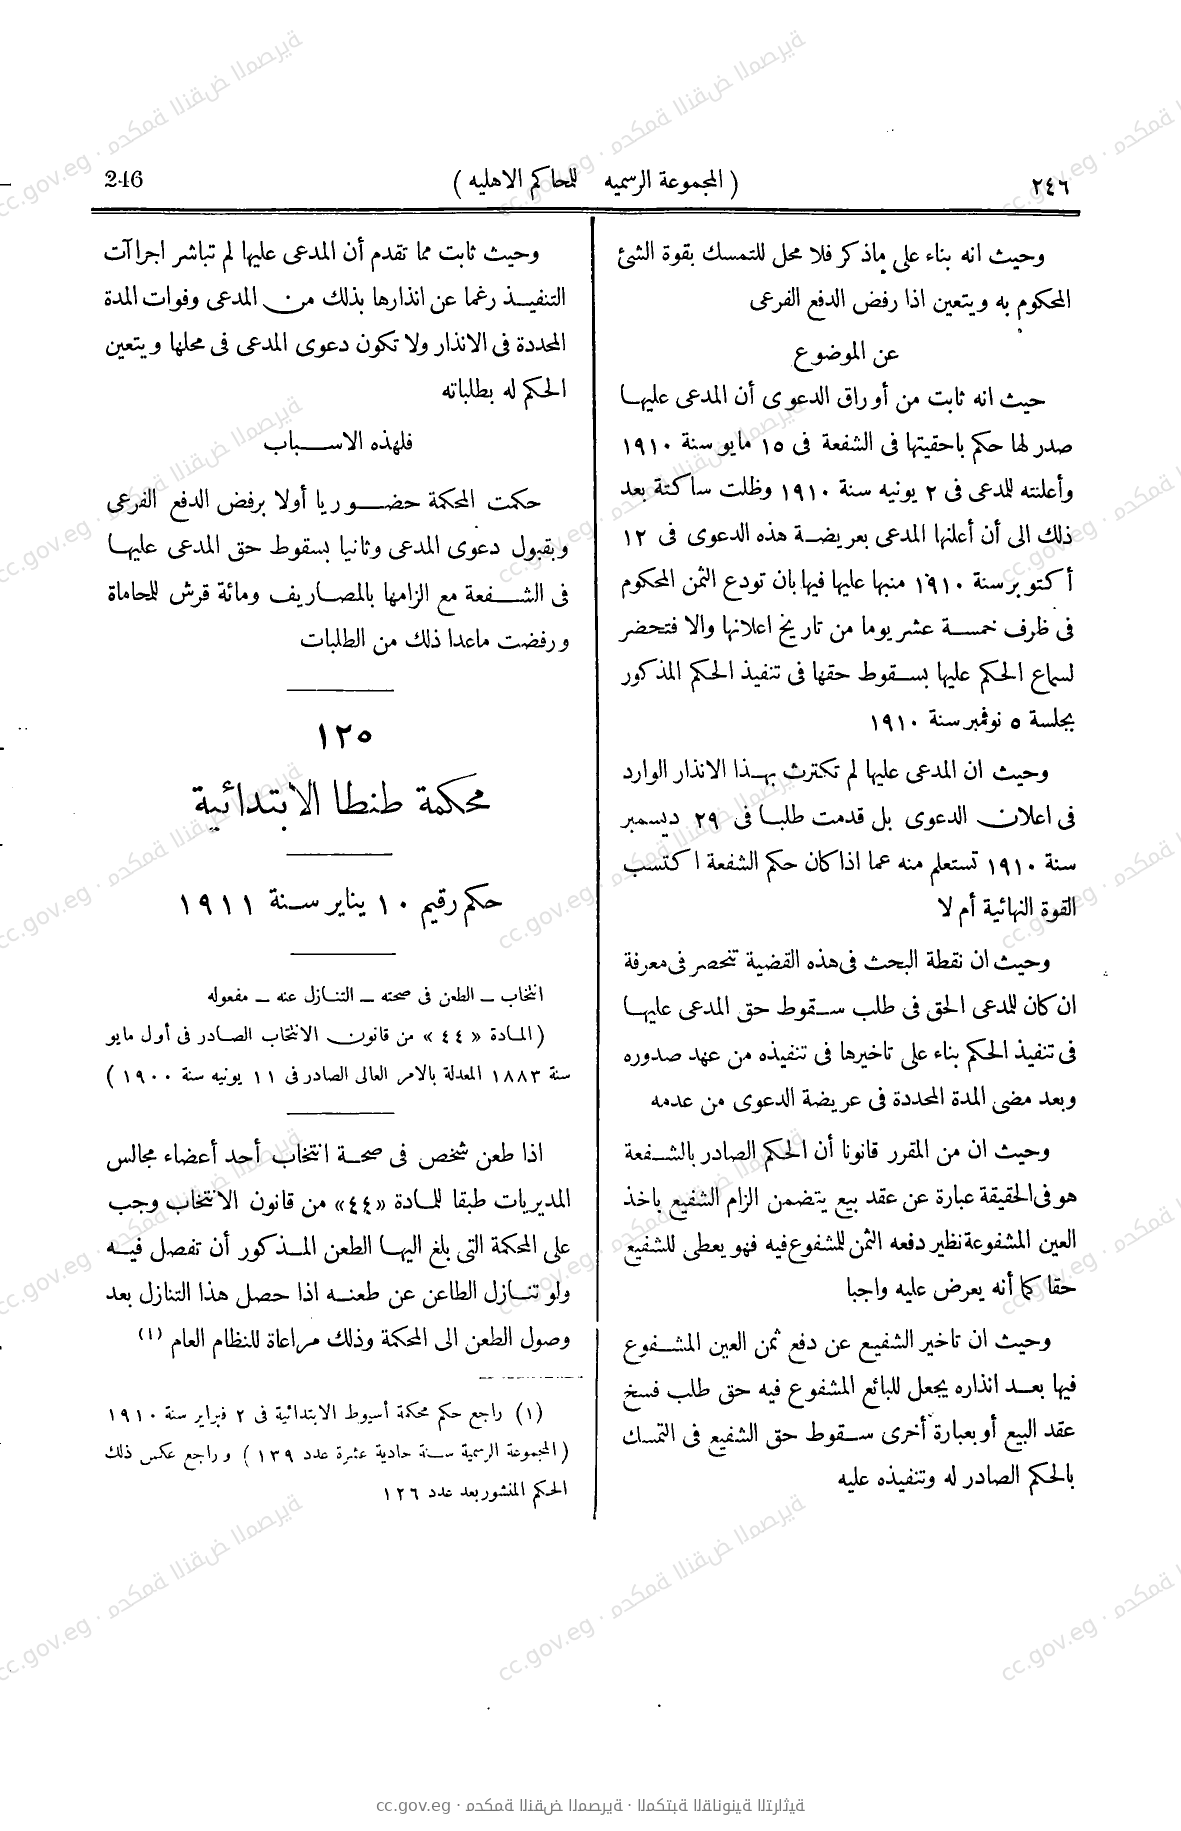 ٢٤٦
( المجموعة الرسميه للمحاكم الاهليه )
246
وحيث انه بناء على ماذكر فلا محل للتمسك بقوة الشئ
المحكوم به ويتعين اذا رفض الدفع الفرعى
عن الموضوع
حيث انه ثابت من أوراق الدعوى أن المدعى عليها
صدر لها حكم باحقيتها فى الشفعة فى ١٥ مايو سنة ١٩١٠
وأعلنته للمدعى فى ٢ يونيه سنة ١٩١٠ وظلت ساكتة بعد
ذلك الى أن أعلنها المدعى بعريضة هذه الدعوى فى ١٢
أكتوبر سنة ١٩١٠ منبها عليها فيها بان تودع الثمن المحكوم
فى ظرف خمسة عشر يوما من تاريخ اعلانها والا فتحضر
لسماع الحكم عليها بسقوط حقها فى تنفيذ الحكم المذكور
بجلسة ٥ نوفمبر سنة ١٩١٠
وحيث ان المدعى عليها لم تكترث بهذا الانذار الوارد
فى اعلان الدعوى بل قدمت طلبا فى ٢٩ ديسمبر
سنة ١٩١٠ تستعلم منه عما اذا كان حكم الشفعة اكتسب
القوة النهائية أم لا
وحيث ان نقطة البحث فى هذه القضية تنحصر فى معرفة
ان كان للمدعى الحق فى طلب سقوط حق المدعى عليها
فى تنفيذ الحكم بناء على تاخيرها فى تنفيذه من عهد صدوره
وبعد مضى المدة المحددة فى عريضة الدعوى من عدمه
وحيث ان من المقرر قانونا أن الحكم الصادر بالشفعة
هو فى الحقيقة عبارة عن عقد بيع يتضمن الزام الشفيع باخذ
العين المشفوعة نظير دفعه الثمن للمشفوع فيه فهو يعطى للشفيع
حقا كما أنه يعرض عليه واجبا
وحيث ان تاخير الشفيع عن دفع ثمن العين المشفوع
فيها بعد انذاره يجعل للبائع المشفوع فيه حق طلب فسخ
عقد البيع أو بعبارة أخرى سقوط حق الشفيع فى التمسك
بالحكم الصادر له وتنفيذه عليه
وحيث ثابت مما تقدم أن المدعى عليها لم تباشر اجراآت
التنفيذ رغما عن انذارها بذلك من المدعى وفوات المدة
المحددة فى الانذار ولا تكون دعوى المدعى فى محلها ويتعين
الحكم له بطلباته
فلهذه الاسباب
حكمت المحكمة حضوريا أولا برفض الدفع الفرعى
وبقبول دعوى المدعى وثانيا بسقوط حق المدعى عليها
فى الشفعة مع الزامها بالمصاريف ومائة قرش للمحاماة
ورفضت ماعدا ذلك من الطلبات
١٢٥
محكمة طنطا الابتدائية
حكم رقيم ١٠ يناير سنة ١٩١١
انتخاب ــ الطعن فى صحته ــ التنازل عنه ــ مفعوله
( المادة « ٤٤ » من قانون الانتخاب الصادر فى أول مايو
سنة ١٨٨٣ المعدلة بالامر العالى الصادر فى ١١ يونيه سنة ١٩٠٠ )
اذا طعن شخص فى صحة انتخاب أحد أعضاء مجالس
المديريات طبقا للمادة «٤٤» من قانون الانتخاب وجب
على المحكمة التى بلغ اليها الطعن المذكور أن تفصل فيه
ولو تنازل الطاعن عن طعنه اذا حصل هذا التنازل بعد
وصول الطعن الى المحكمة وذلك مراعاة للنظام العام (١)
(١) راجع حكم محكمة أسيوط الابتدائية فى ٢ فبراير سنة ١٩١٠
( المجموعة الرسمية سنة حادية عشرة عدد ١٣٩ ) وراجع عكس ذلك
الحكم المنشور بعد عدد ١٢٦
cc.gov.eg · محكمة النقض المصرية · المكتبة القانونية التراثية